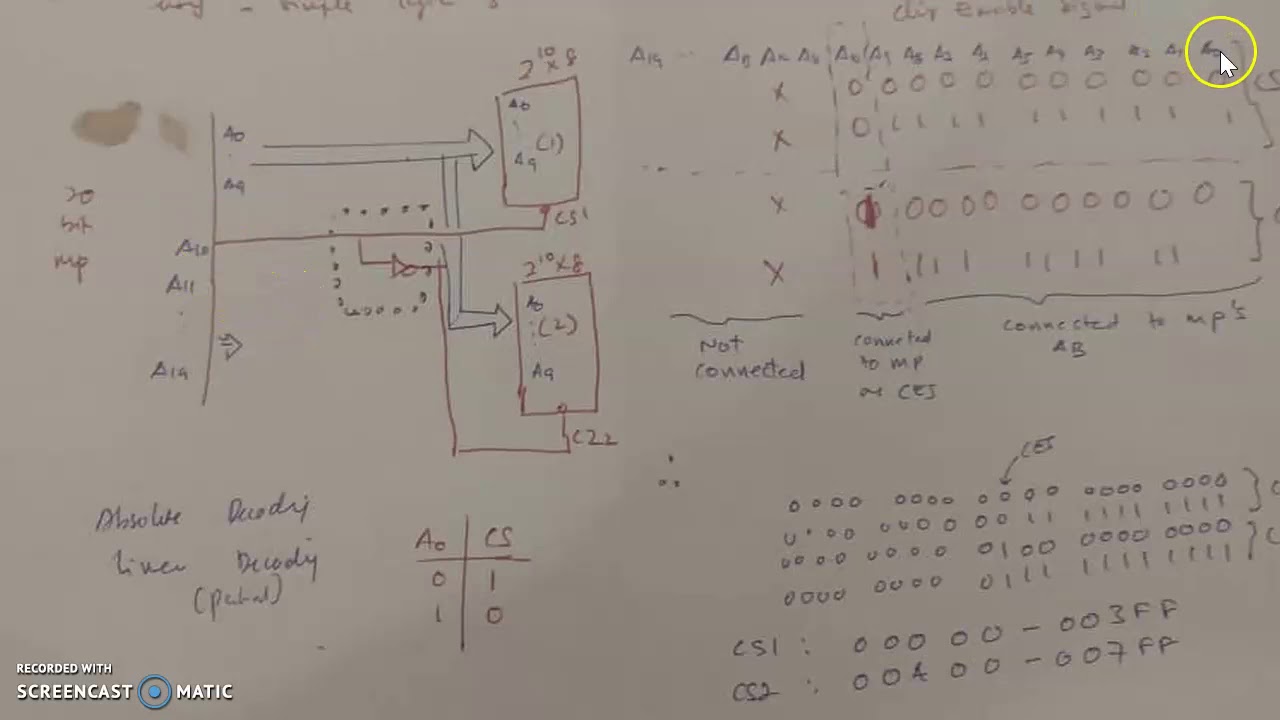 chip enable signal
2^10 x 8
A19 ... A10 A9 A8 A7 A6 A5 A4 A3 A2 A1 A0
X 0 0 0 0 0 0 0 0 0 0 0
X 0 1 1 1 1 1 1 1 1 1 1
X 0 0 0 0 0 0 0 0 0 0
X 1 1 1 1 1 1 1 1 1 1
A0
A9
A10
A11
A19
20
bit
mp
A0
A9
(1)
CS1
2^10 x 8
A0
(2)
A9
CS2
Not
connected
connected
to mp
as CES
connected to mp's
AB
∴
CES
0000 0000 0000 0000 0000
0000 0000 0011 1111 1111
0000 0000 0100 0000 0000
0000 0000 0111 1111 1111
CS1 : 00000 - 003FF
CS2 : 00400 - 007FF
Absolute Decodig
Linear Decodig
(partial)
A0 CS
0 1
1 0
RECORDED WITH
SCREENCAST MATIC